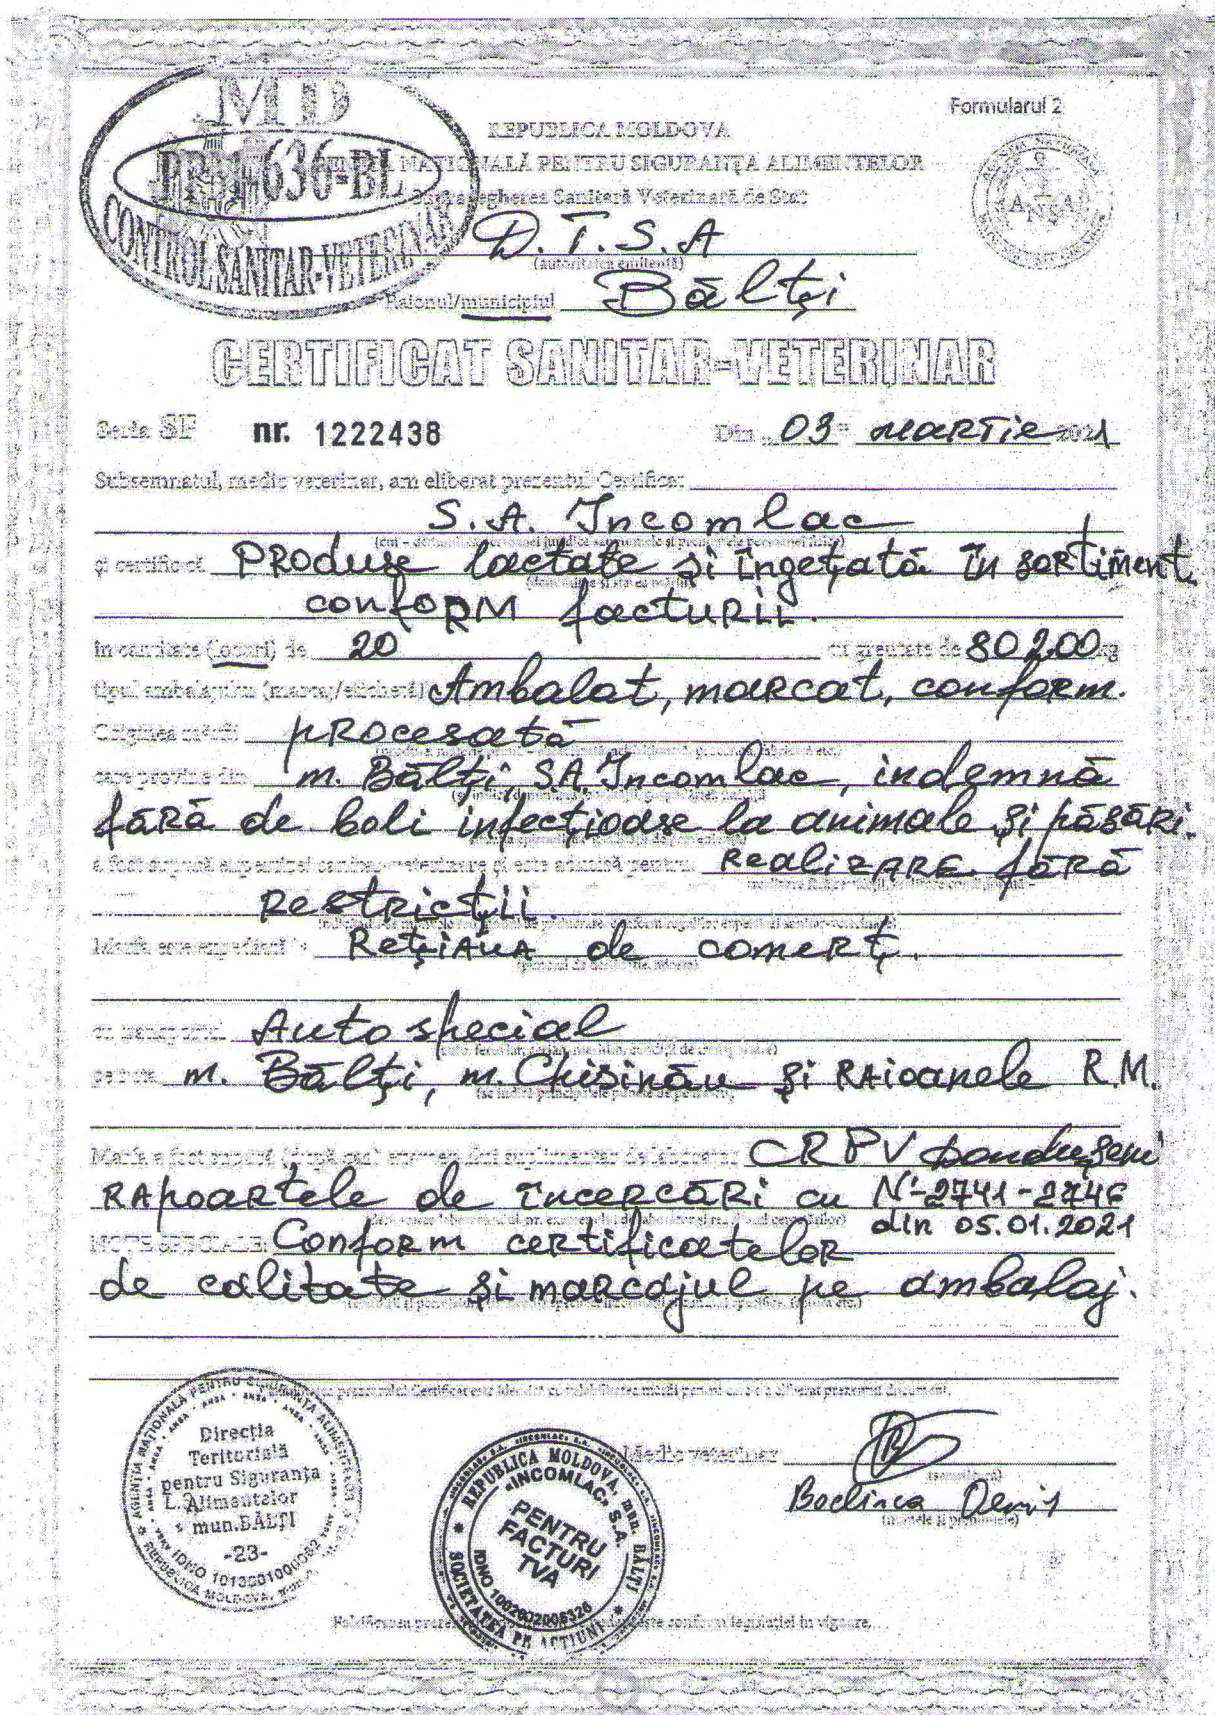 Formularul 2
MD
PRM 636-BL
CONTROL SANITAR-VETERINAR
REPUBLICA MOLDOVA
NAȚIONALĂ PENTRU SIGURANȚA ALIMENTELOR
Supravegherea Sanitară Veterinară de Stat
ANSA
D.T.S.A
(autoritatea emitentă)
Raionul/municipiul Bălți
CERTIFICAT SANITAR-VETERINAR
Seria SF nr. 1222438 Din „03" martie 2021
Subsemnatul, medic veterinar, am eliberat prezentul Certificat
S.A. Incomlac
și certific că Produse lactate și îngețată în sortiment
conform facturii.
în cantitate (locuri) de 20 cu greutate de 80200 kg
tipul ambalajului (marcaj/etichetă) Ambalat, marcat, conform.
Originea mărfii procesată
care provine din m. Bălți, S.A. Incomlac, indemnă
fără de boli infecțioase la animale și păsări.
a fost supusă expertizei sanitar-veterinare și este admisă pentru realizare fără
restricții.
Marfa este expediată în Rețiaua de comerț.
cu transportul Auto special
pe ruta m. Bălți, m. Chisinău și raioanele R.M.
Marfa a fost supusă (după caz) examenului suplimentar de laborator CRPV Dondușeni
Rapoartele de încercări cu N-2741-2746
din 05.01.2021
NOTE SPECIALE: Conform certificatelor
de calitate și marcajul pe ambalaj.
prezentului Certificat este
AGENȚIA NAȚIONALĂ PENTRU SIGURANȚA ALIMENTELOR
Direcția
Teritorială
pentru Siguranța
Alimentelor
mun.BĂLȚI
-23-
REPUBLICA MOLDOVA
REPUBLICA MOLDOVA, mun. BĂLȚI
«INCOMLAC» S.A.
PENTRU
FACTURI
TVA
IDNO 1002602006326
SOCIETATEA PE ACȚIUNI
Medic veterinar
(semnătura)
Bodinca Denis
(numele și prenumele)
Falsificarea conform legislației în vigoare.